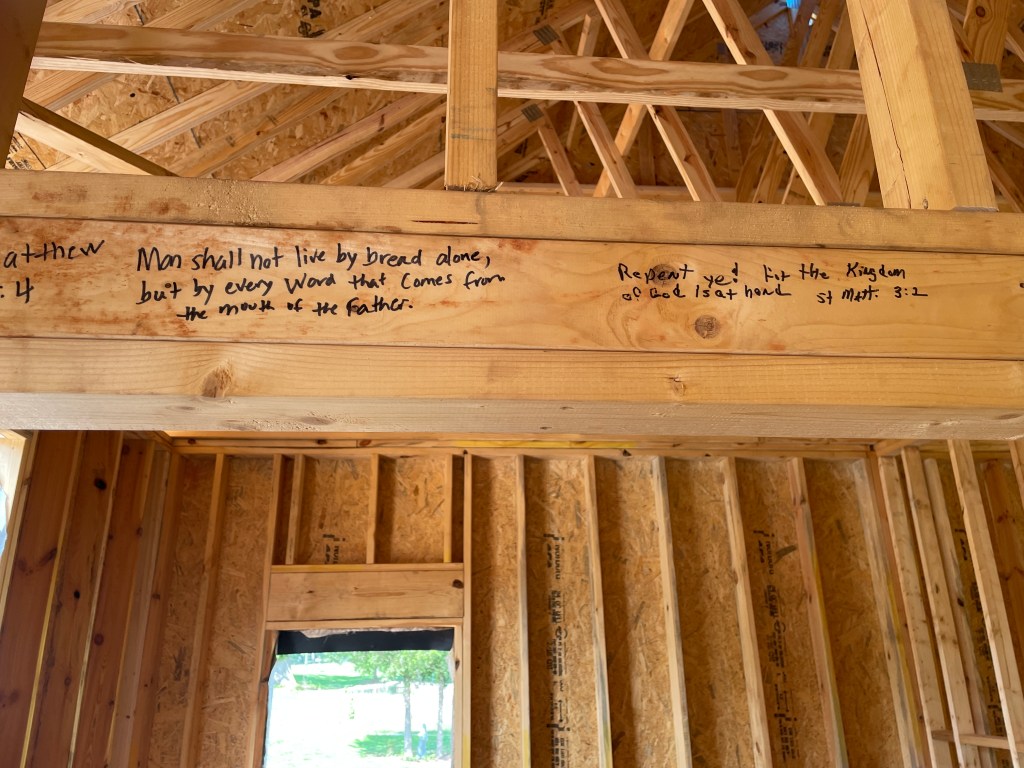 atthew
:4
Man shall not live by bread alone,
but by every Word that Comes from
the mouth of the Father.
Repent ye! For the Kingdom
of God Is at hand St Matt. 3:2